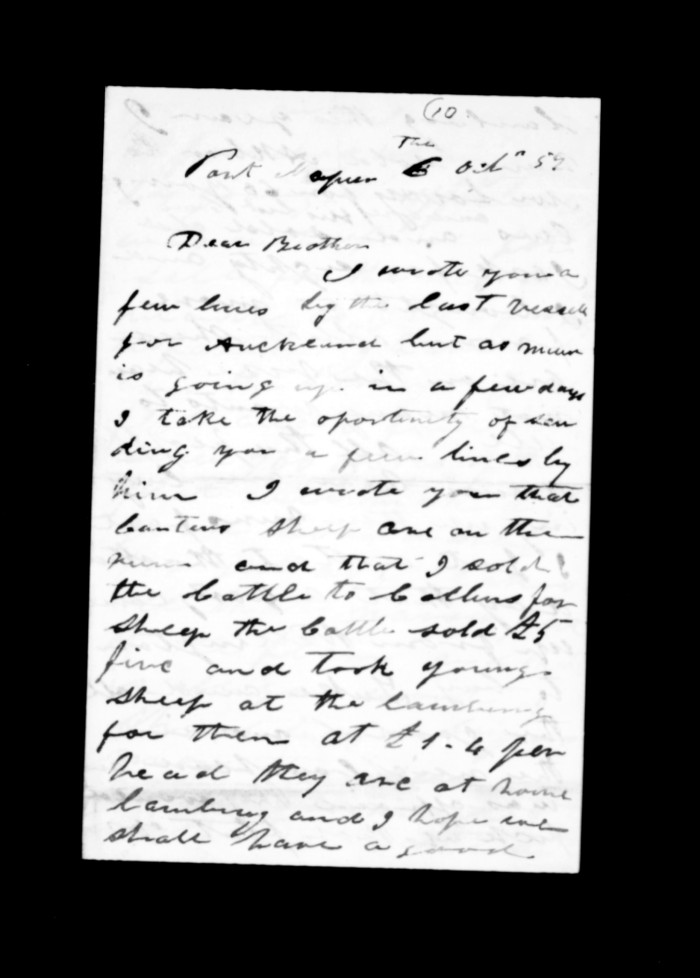 (10
Port Napier The 6 Octr 59
Dear Brother
I wrote you a
few lines by the last vessell
for Auckland but as
is going up in a few days
I take the oportunity of sen
ding you a few lines by
him I wrote you that
Canters sheep are on the
runn and that I sold
the Cattle to Collins for
sheep the Cattle sold £5
five and took young
sheep at the lambing
for them at £1-4 per
head they are at home
lambing and I hope we
shall have a good